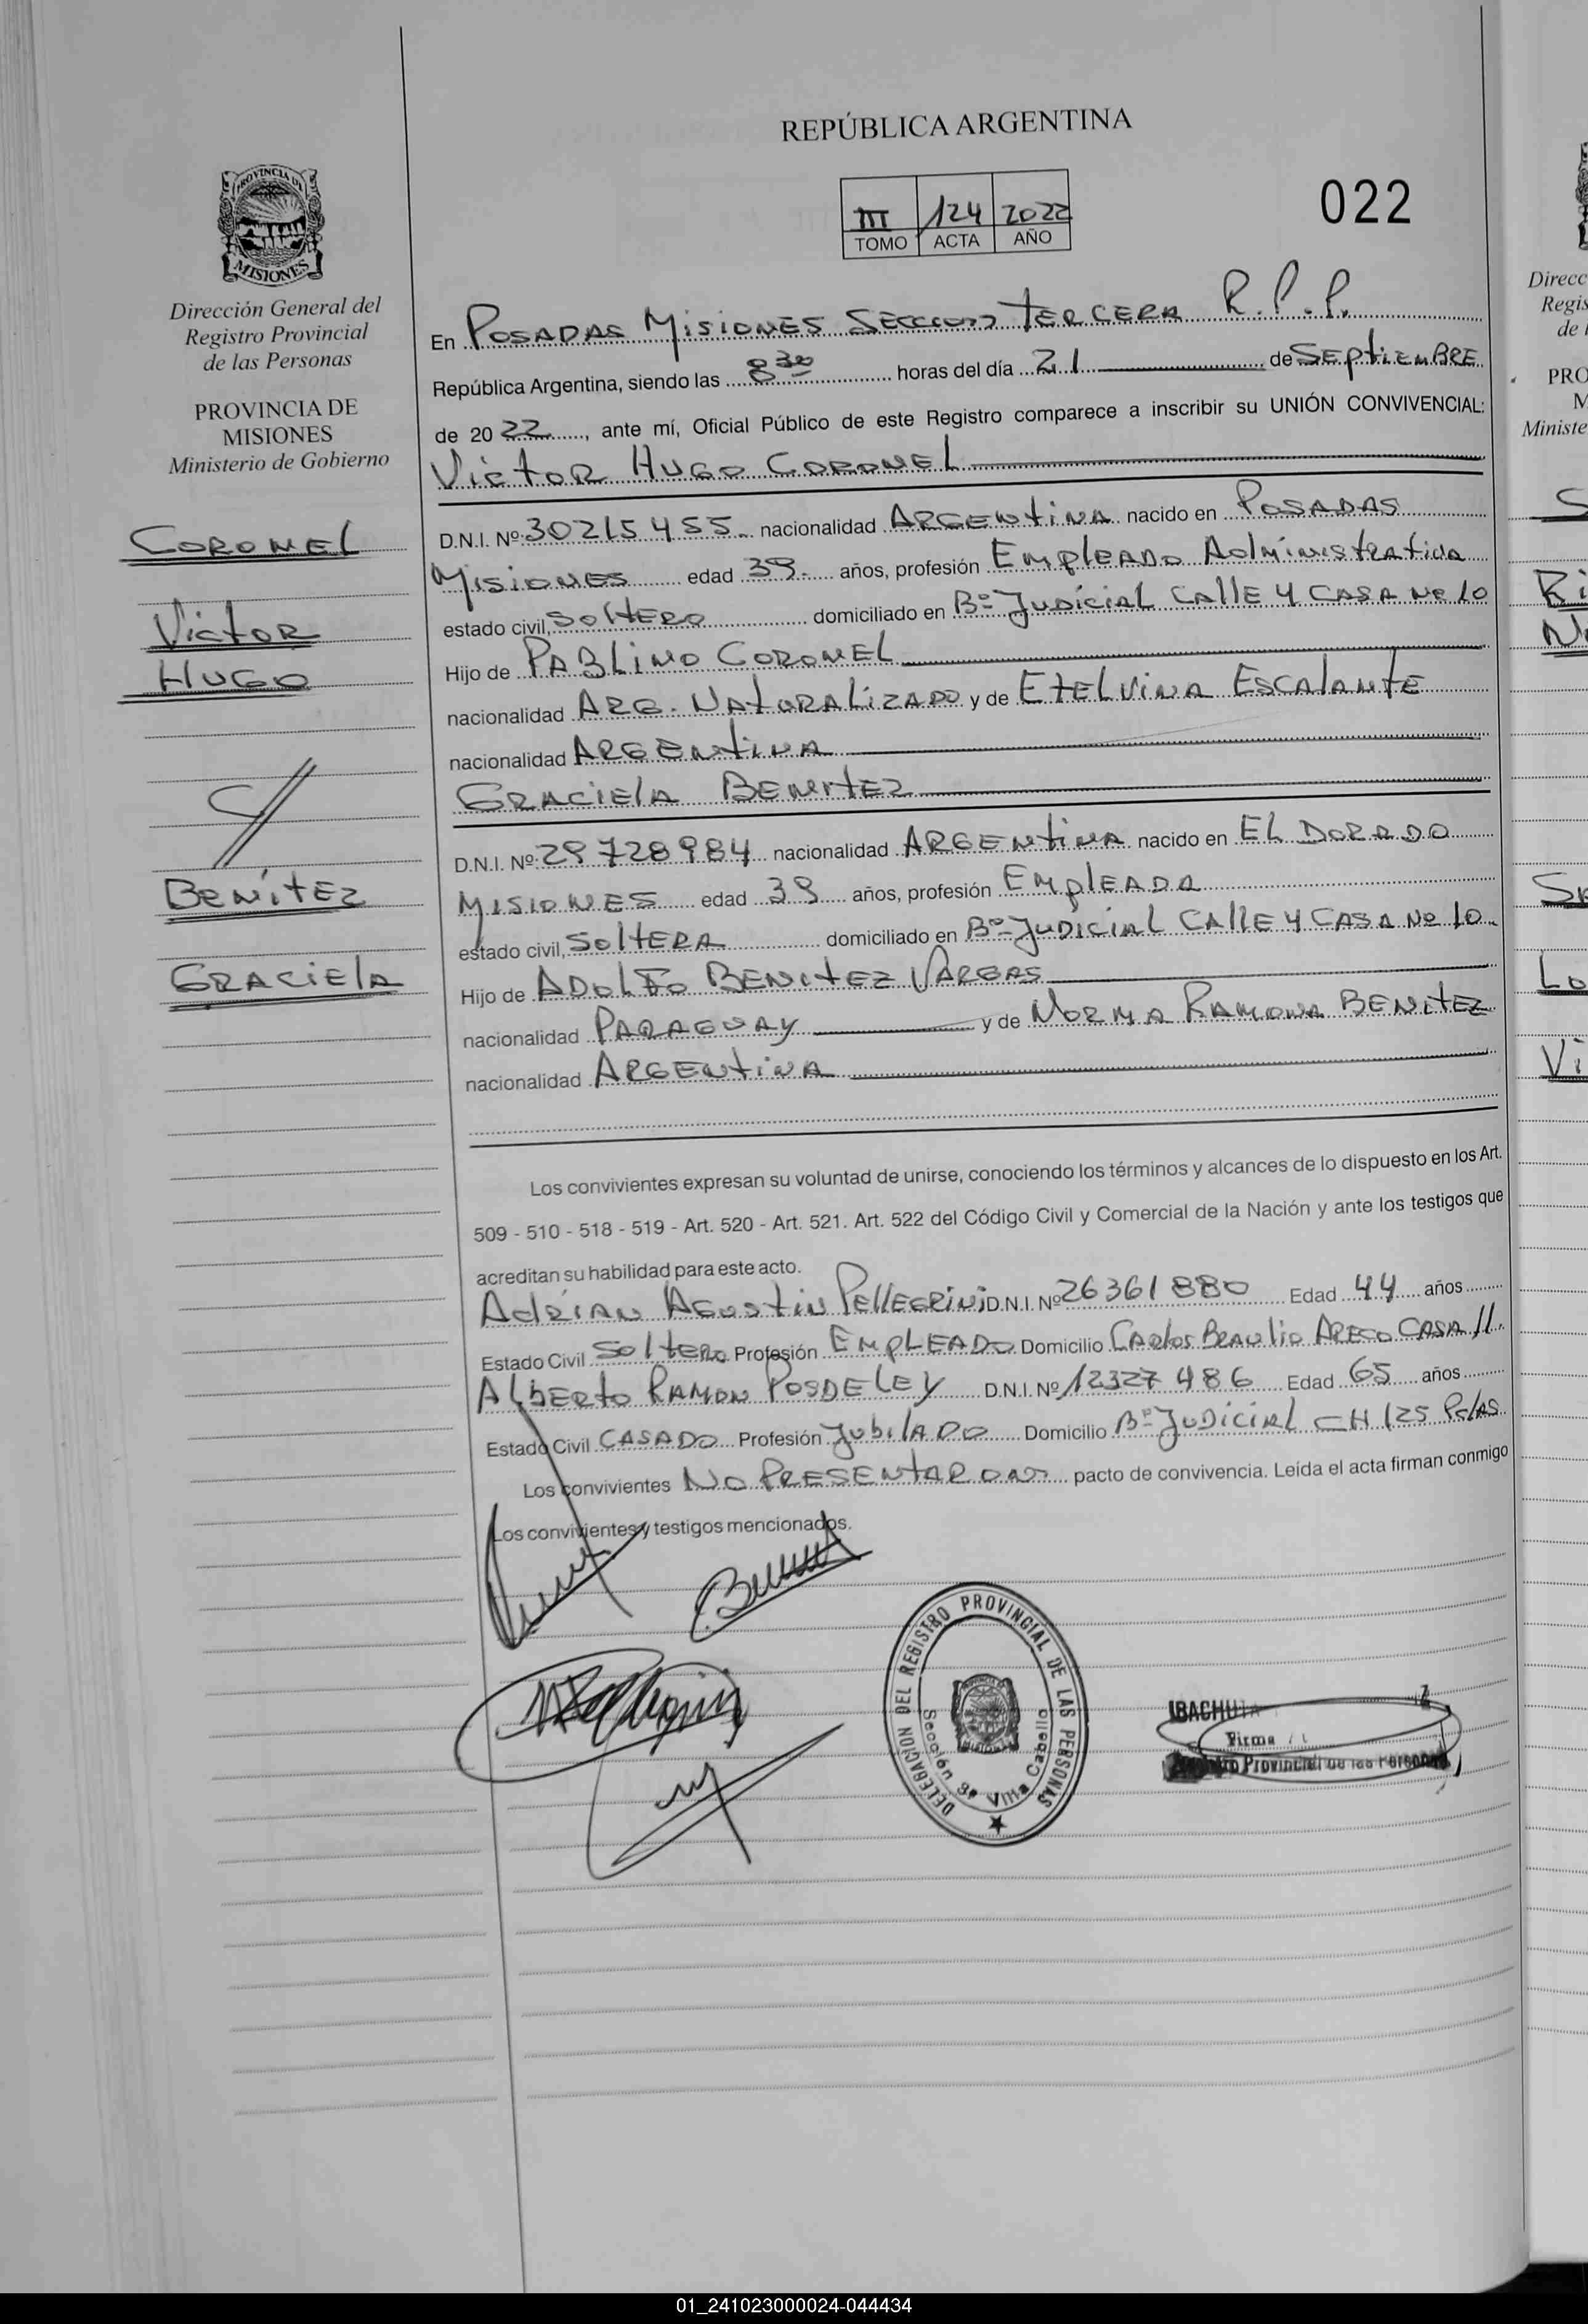 REPÚBLICA ARGENTINA
022
III 124 2022
TOMO ACTA AÑO
PROVINCIA DE
MISIONES
Dirección General del
Registro Provincial
de las Personas
PROVINCIA DE
MISIONES
Ministerio de Gobierno
CORONEL
Victor
HUGO
BENÍTEZ
GRACIELA
En POSADAS MISIONES SECCION TERCERA R.P.P.
República Argentina, siendo las 8 30 horas del día 21 de SEPTIEMBRE
de 20 22, ante mí, Oficial Público de este Registro comparece a inscribir su UNIÓN CONVIVENCIAL:
VICTOR HUGO CORONEL
D.N.I. Nº: 30215455 nacionalidad ARGENTINA nacido en POSADAS
MISIONES edad 39 años, profesión EMPLEADO Administrativo
estado civil, SOLTERO domiciliado en Bº JUDICIAL CALLE 4 CASA Nº 10
Hijo de PABLINO CORONEL
nacionalidad ARG. NATURALIZADO y de ETELVINA ESCALANTE
nacionalidad ARGENTINA
GRACIELA BENITEZ
D.N.I. Nº: 29728984 nacionalidad ARGENTINA nacido en EL DORADO
MISIONES edad 39 años, profesión EMPLEADA
estado civil, SOLTERA domiciliado en Bº JUDICIAL CALLE 4 CASA Nº 10
Hijo de ADOLFO BENITEZ VARGAS
nacionalidad PARAGUAY y de NORMA RAMONA BENITEZ
nacionalidad ARGENTINA
Los convivientes expresan su voluntad de unirse, conociendo los términos y alcances de lo dispuesto en los Art.
509 - 510 - 518 - 519 - Art. 520 - Art. 521. Art. 522 del Código Civil y Comercial de la Nación y ante los testigos que
acreditan su habilidad para este acto.
Adrian Agustin PELLEGRINI D.N.I. Nº 26361880 Edad 44 años
Estado Civil Soltero Profesión EMPLEADO Domicilio Carlos Braulio Areco CASA 11.
ALBERTO RAMON POSDELEY D.N.I. Nº 12327486 Edad 65 años
Estado Civil CASADO Profesión JUBILADO Domicilio Bº JUDICIAL CH 125 Pdas
Los convivientes NO PRESENTARON pacto de convivencia. Leída el acta firman conmigo
Los convivientes y testigos mencionados.
DELEGACION DEL REGISTRO PROVINCIAL DE LAS PERSONAS
Sección 3ª Villa Cabello
Firma
Provincial de las Personas
01_241023000024-044434